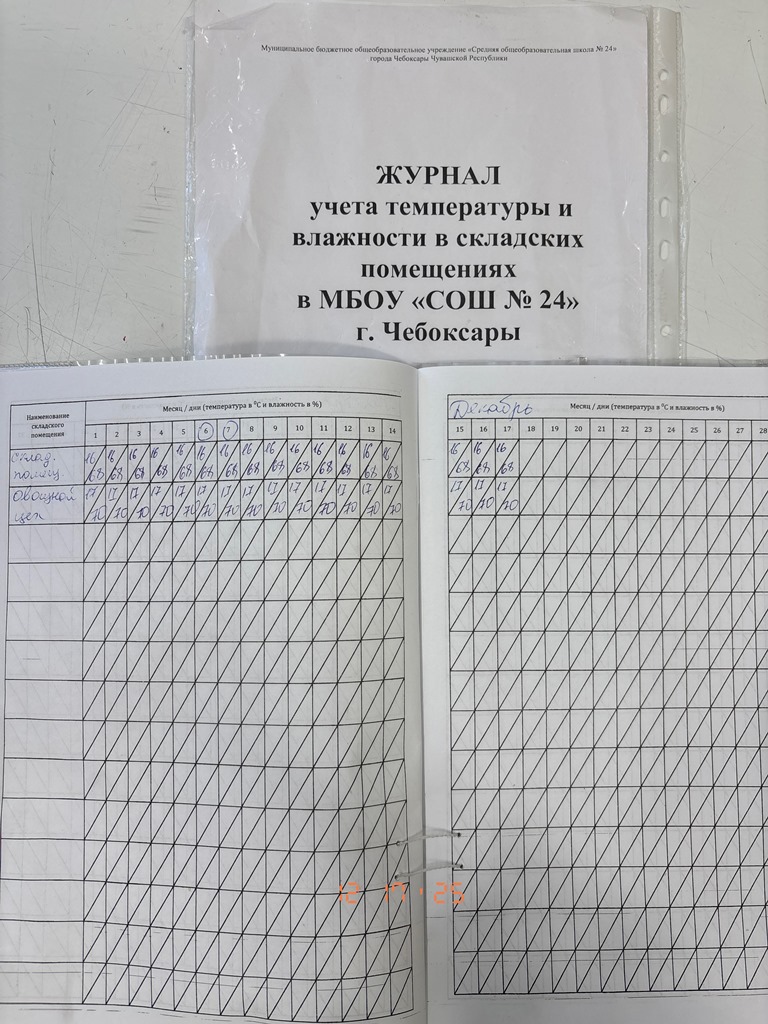 Муниципальное бюджетное общеобразовательное учреждение «Средняя общеобразовательная школа № 24»
города Чебоксары Чувашской Республики
ЖУРНАЛ
учета температуры и
влажности в складских
помещениях
в МБОУ «СОШ № 24»
г. Чебоксары
Наименование
складского
помещения
Месяц / дни (температура в ⁰С и влажность в %)
1 2 3 4 5 6 7 8 9 10 11 12 13 14
Склад.
помещ.
16 16 16 16 16 16 16 16 16 16 16 16 16 16
68 68 68 68 68 68 68 68 68 68 68 68 68 68
Овощной
цех
17 17 17 17 17 17 17 17 17 17 17 17 17 17
70 70 70 70 70 70 70 70 70 70 70 70 70 70
Декабрь Месяц / дни (температура в ⁰С и влажность в %)
15 16 17 18 19 20 21 22 23 24 25 26 27 28
16 16 16
68 68 68
17 17 17
70 70 70
12 17 '25